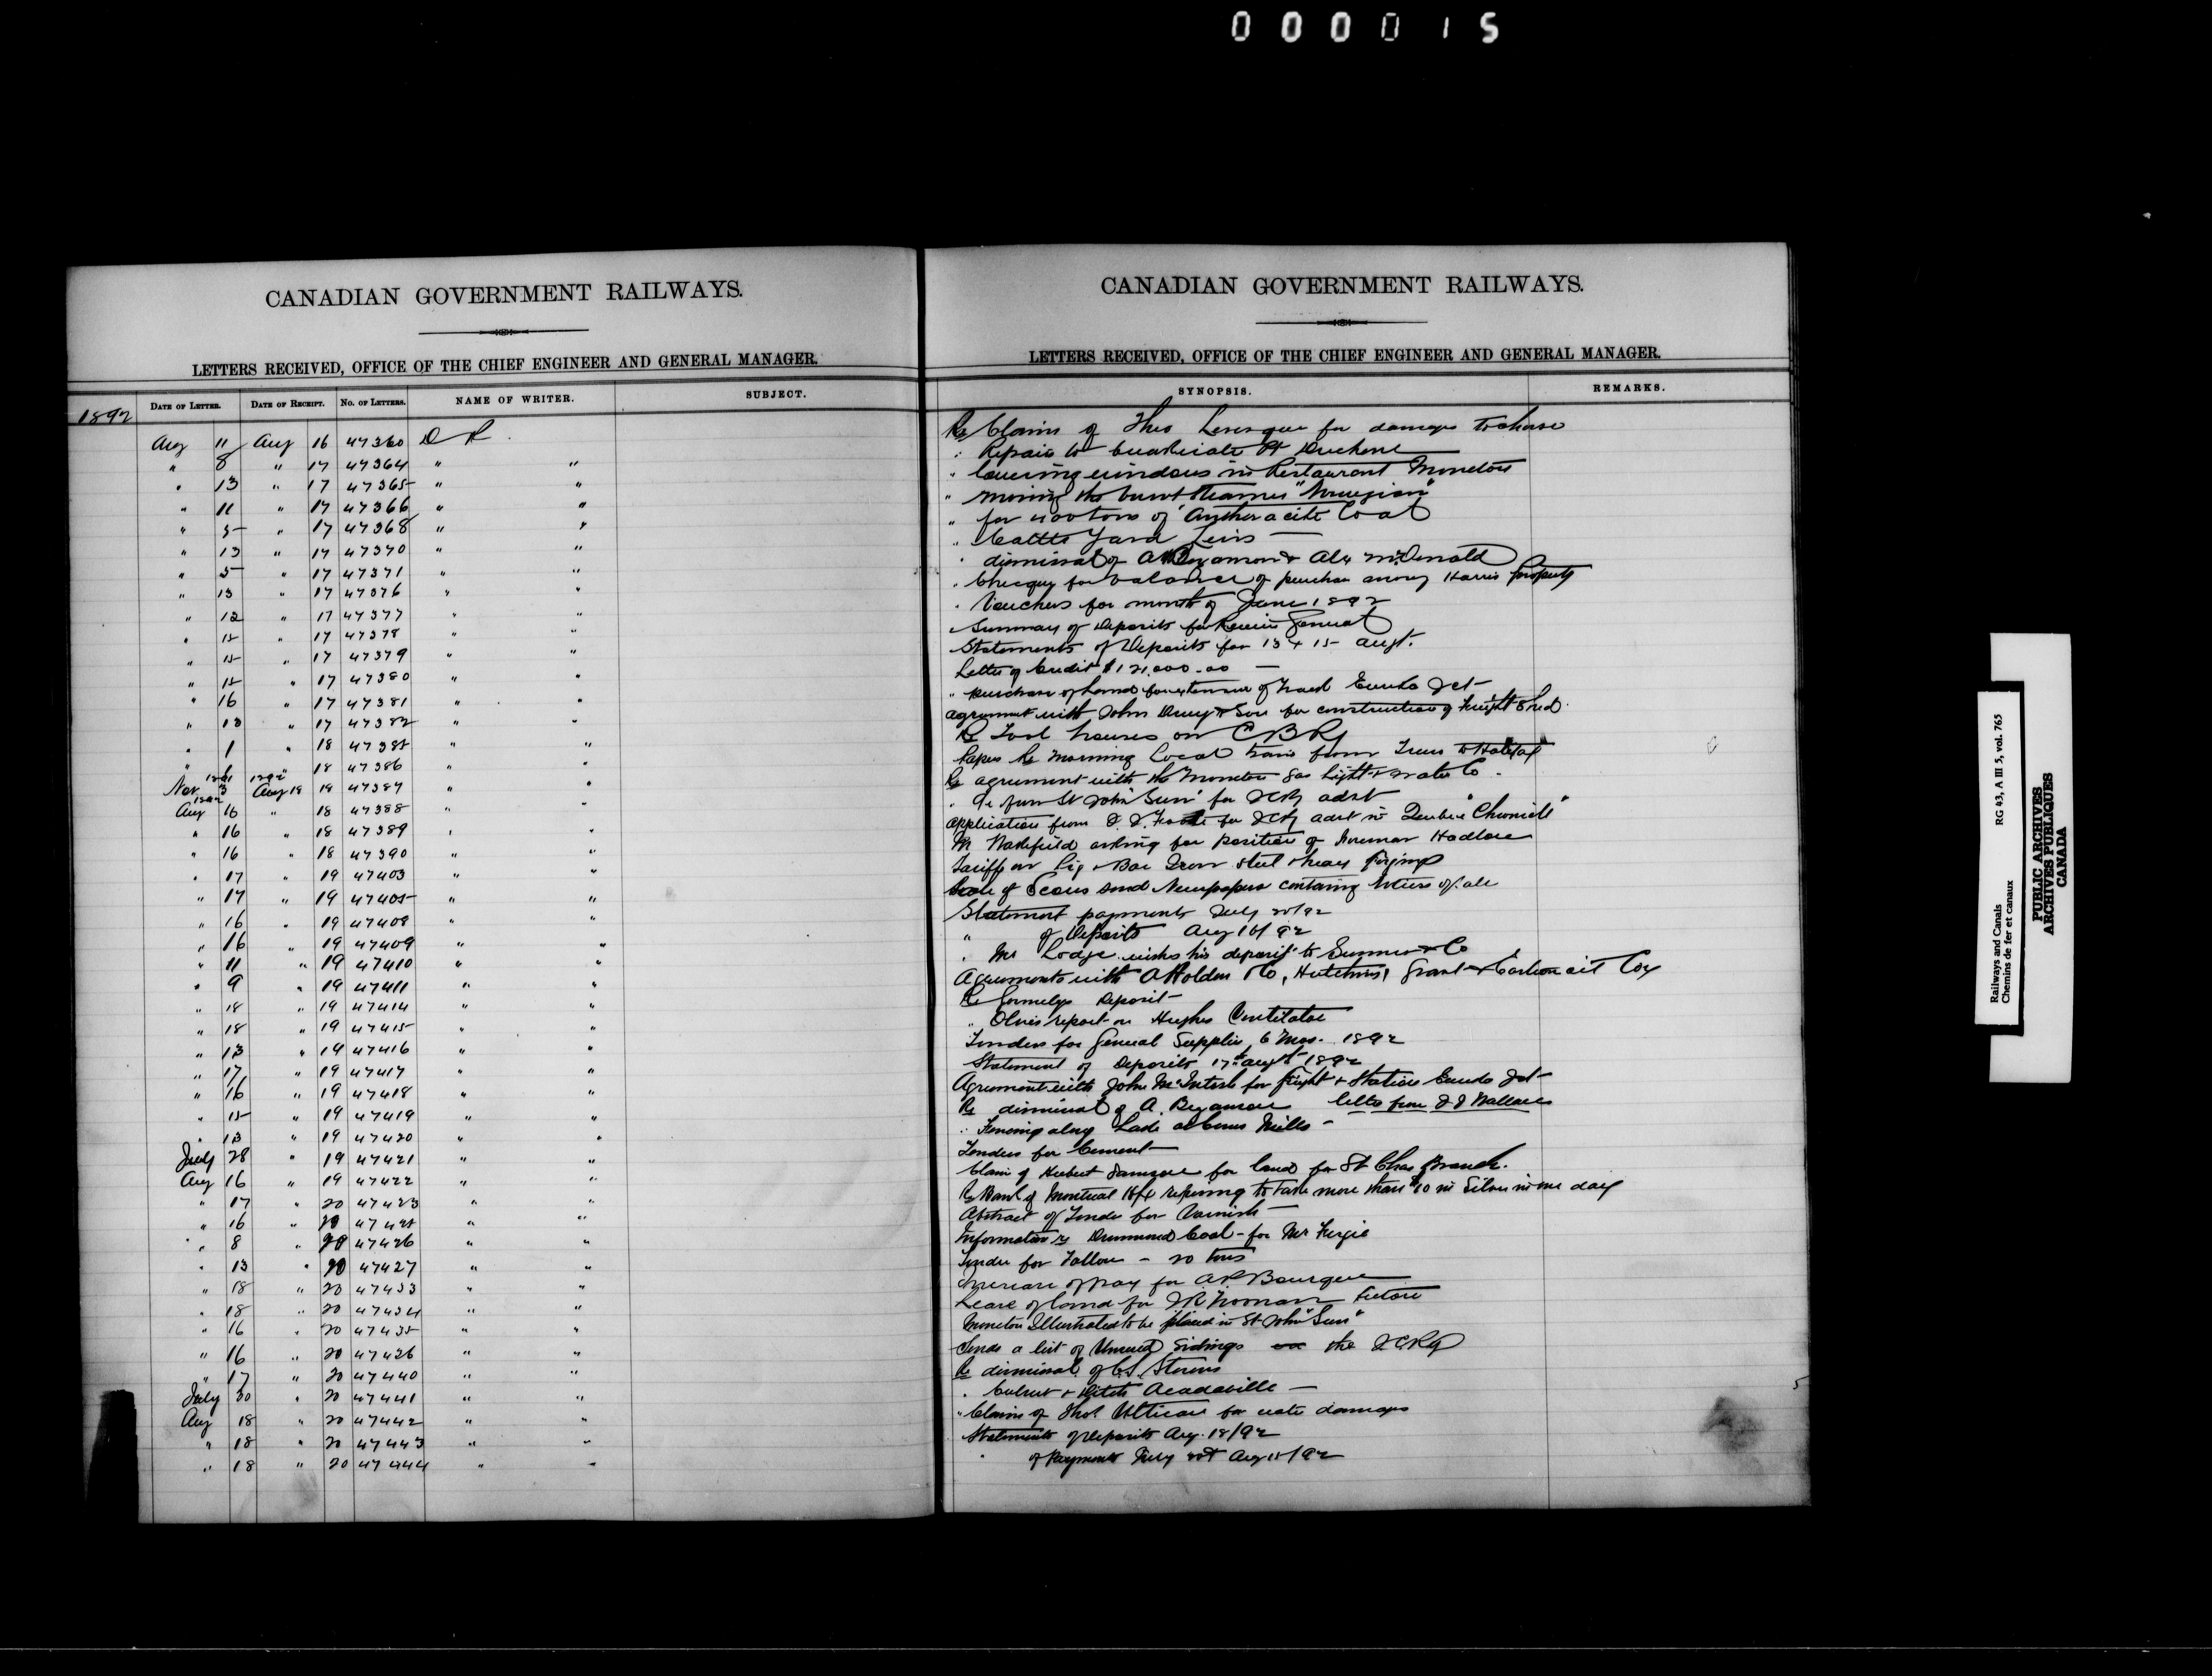 000015
CANADIAN GOVERNMENT RAILWAYS.
LETTERS RECEIVED, OFFICE OF THE CHIEF ENGINEER AND GENERAL MANAGER.
1892
DATE OF LETTER. DATE OF RECEIPT. No. OF LETTERS. NAME OF WRITER. SUBJECT.
Aug 11 Aug 16 47360 D R.
" 8 " 17 47364 " "
" 13 " 17 47365 " "
" 11 " 17 47366 " "
" 5 " 17 47368 " "
" 13 " 17 47370 " "
" 5 " 17 47371 " "
" 13 " 17 47376 " "
" 12 " 17 47377 " "
" 15 " 17 47378 " "
" 15 " 17 47379 " "
" 15 " 17 47380 " "
" 16 " 17 47381 " "
" 13 " 17 47382 " "
" 1 " 18 47385 " "
" " 18 47386 " "
Nov 1891 3 1892 Aug 18 18 47387 " "
1892 Aug 16 " 18 47388 "
" 16 " 18 47389 " "
" 16 " 18 47390 " "
" 17 " 19 47403 " "
" 17 " 19 47405 " "
" 16 " 19 47408 " "
" 16 " 19 47409 " "
" 11 " 19 47410 " "
" 9 " 19 47411 " "
" 18 " 19 47414 " "
" 18 " 19 47415 " "
" 13 " 19 47416 " "
" 17 " 19 47417 " "
" 16 " 19 47418 " "
" 15 " 19 47419 " "
" 13 " 19 47420 " "
July 28 " 19 47421 " "
Aug 16 " 19 47422 " "
" 17 " 20 47423 " "
" 16 " 20 " "
" 8 " 20 47426 " "
" 13 " 20 47427 " "
" 18 " 20 47433 " "
" 18 " 20 47434 " "
" 16 " 20 47435 " "
" 16 " 20 47436 " "
" 17 " 20 47440 " "
July 30 " 20 47441 " "
Aug 18 " 20 47442 " "
" 18 " 20 47443 " "
" 18 " 20 47444 " "
CANADIAN GOVERNMENT RAILWAYS.
LETTERS RECEIVED, OFFICE OF THE CHIEF ENGINEER AND GENERAL MANAGER.
SYNOPSIS. REMARKS.
Re Claim of Theo Levesque for damages to horse
" Repairs to
" lowering windows in Restaurant Moncton
" moving the burnt Steamer "Norwegian"
" for tons of Anthracite Coal
" Cattle Yard Levis
" dismissal of A & Alex McDonald
" Cheque for balance of purchase money Harris property
" Vouchers for month of June 1892
" Summary of Deposits for Receiver General
Statements of Deposits for 13 & 15 Augt.
Letter of Credit $121,000.00
" purchase of land for extension of track Eureka Jct
Agreement with John & Son for construction of freight Shed
Re Tool houses on C B Ry
Papers Re Morning Local train from Truro to Halifax
Re agreement with the Moncton Gas Light & Water Co.
" from St John "Sun" for ICRy advt
Application from for ICRy advt in Quebec "Chronicle"
Mr Wakefield asking for position of foreman Hadlow
Tariff on Pig & Bar Iron Steel & heavy forgings
send Newspapers containing notices of sale
Statement payments July 20/92
" of Deposits Aug 16/92
" Mr Lodge wishes his deposit to Sumner & Co
Agreements with A Holden & Co, Hutchins, Grant & oil Coy
Re Deposit
" report on Hughes Ventilator
Tenders for General Supplies 6 Mos. 1892
Statement of Deposits 17th Augt 1892
Agreement with John McIntosh for freight & Station Eureka Jct
Re dismissal of A. letter from J J Wallace
" Fencing along Lake at Mills
Tenders for Cement
Claim of Hubert for land for St Chas Branch.
Re Bank of Montreal Hfx refusing to take more than $10 in Silver in one day
Abstract of Tender for Varnish
Information re Drummond Coal for Mr Fergie
Tender for Tallow - 20 tons
Increase of pay for A R Bourque
Lease of land for
Moncton Illustrated to be placed in St John "Sun"
Sends a list of Unused Sidings on the ICRy
Re dismissal of C. S. Stevens
" Culvert & Ditch Acadaville
" Claim of for damages
Statements of Deposits Aug. 18/92
" of Payments July Aug 18/92
Railways and Canals RG 43, A III 5, vol. 765
Chemins de fer et canaux
PUBLIC ARCHIVES
ARCHIVES PUBLIQUES
CANADA